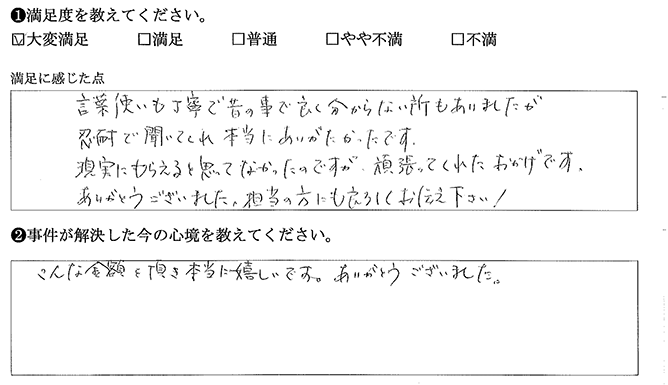 ❶満足度を教えてください。
☑大変満足 □満足 □普通 □やや不満 □不満
満足に感じた点
言葉使いも丁寧で昔の事で良く分からない所もありましたが
忍耐で聞いてくれ本当にありがたかったです。
現実にもらえると思ってなかったのですが、頑張ってくれたおかげです。
ありがとうございました。担当の方にも宜ろしくお伝え下さい!
❷事件が解決した今の心境を教えてください。
こんな金額を頂き本当に嬉しいです。ありがとうございました。